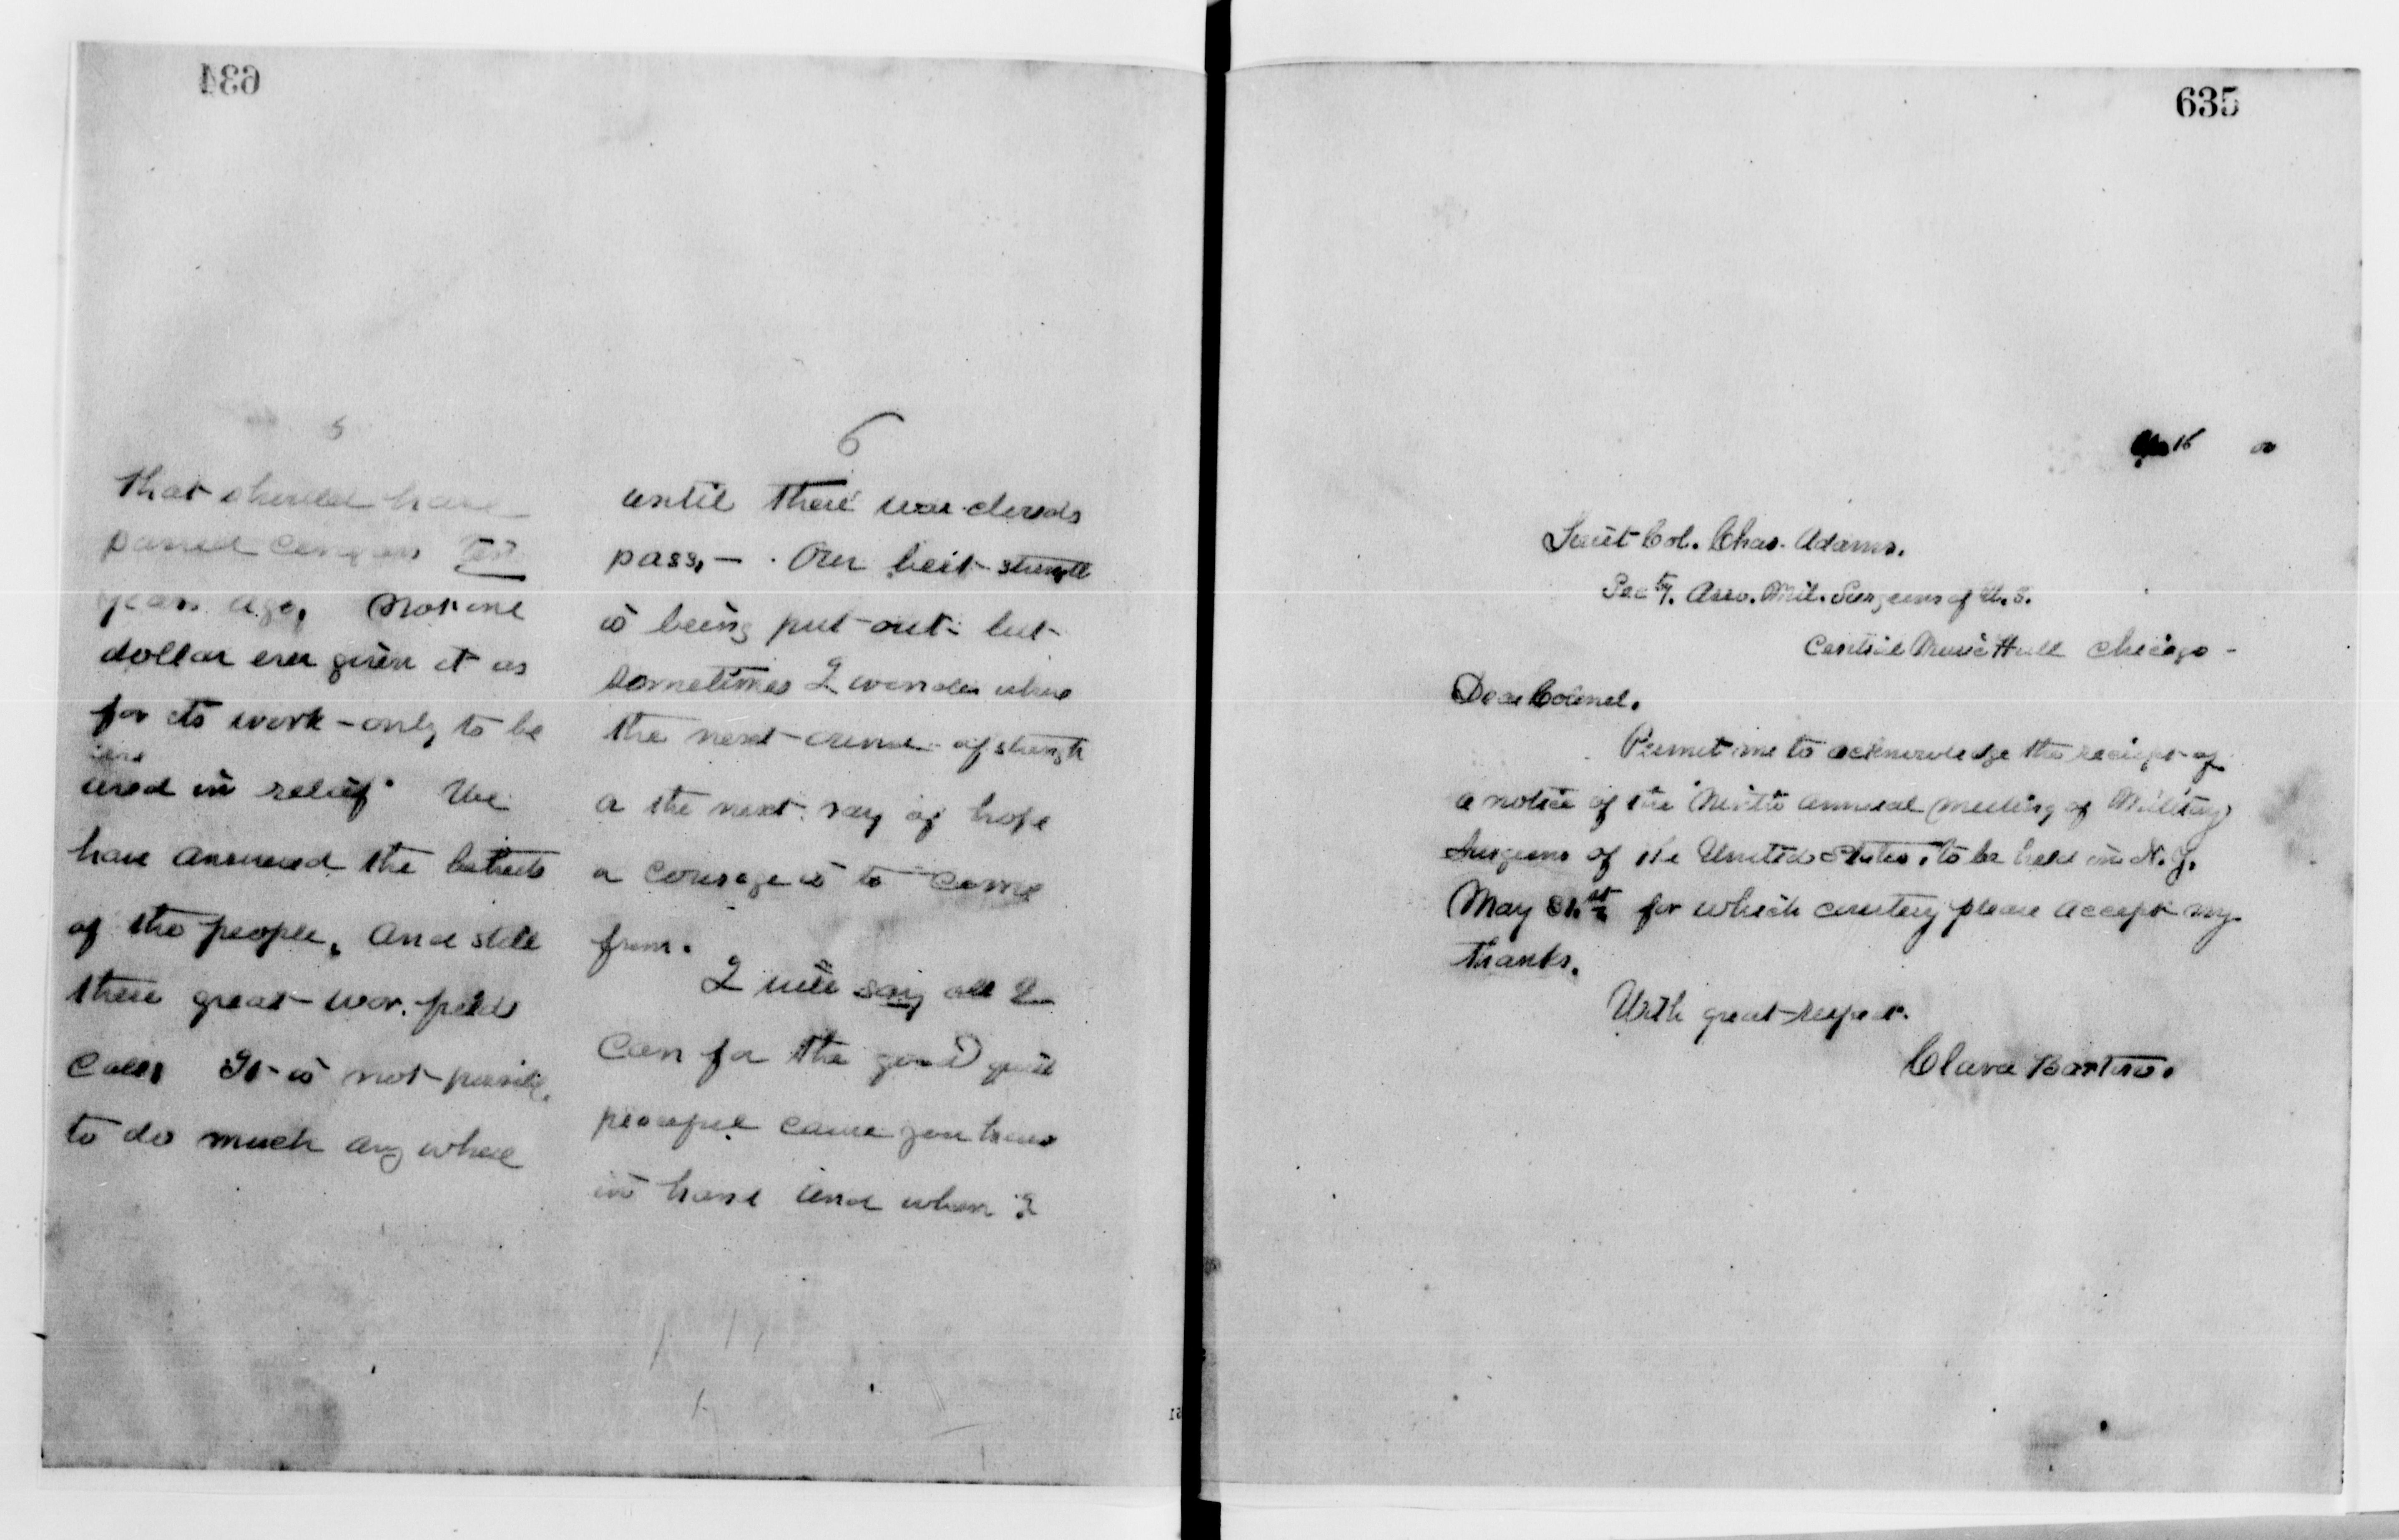 634
5
that should have
passed Congress ten
years ago, Not one
dollar ever given it us
for its work – only to be
used in relief. We
have answered the behests
of the people, and still
these great war fields
call, It is not possible
to do much any where
6
until these war clouds
pass, – Our best strength
is being put out – but
sometimes I wonder where
the next ounce of strength
or the next ray of hope
or courage is to come
from.
I will say all I
can for the good
peaceful cause you have
in hand and when I
635
16
Lieut Col. Chas. Adams.
Secty. Asso. Mil. Surgeons of U.S.
Central Music Hall Chicago –
Dear Colonel.
Permit me to acknowledge the reciept of
a notice of the "Ninth annual meeting of Military
Surgeons of the United States", to be held in N.Y.
May 31st for which courtesy please accept my
thanks.
With great respect.
Clara Barton.